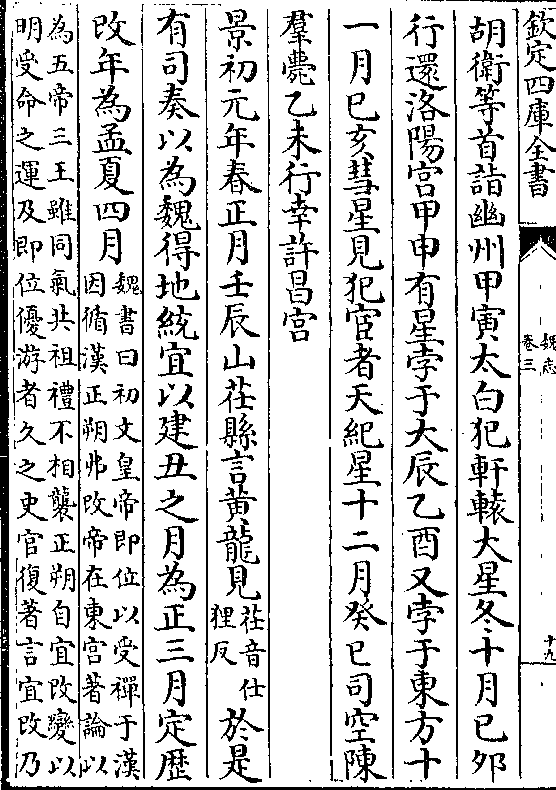 欽定四庫全書
魏志
卷三
十九
胡衛等首詣幽州甲寅太白犯軒轅大星冬十月己夘
行還洛陽宫甲申有星孛于大辰乙酉又孛于東方十
一月己亥彗星見犯宦者天紀星十二月癸巳司空陳
羣薨乙未行幸許昌宫
景初元年春正月壬辰山茌縣言黄龍見茌音仕狸反於是
有司奏以為魏得地統宜以建丑之月為正三月定歴
改年為孟夏四月魏書曰初文皇帝即位以受禪于漢
因循漢正朔弗改帝在東宫著論以
為五帝三王雖同氣共祖禮不相襲正朔自宜改變以
明受命之運及即位優游者久之史官復著言宜改乃